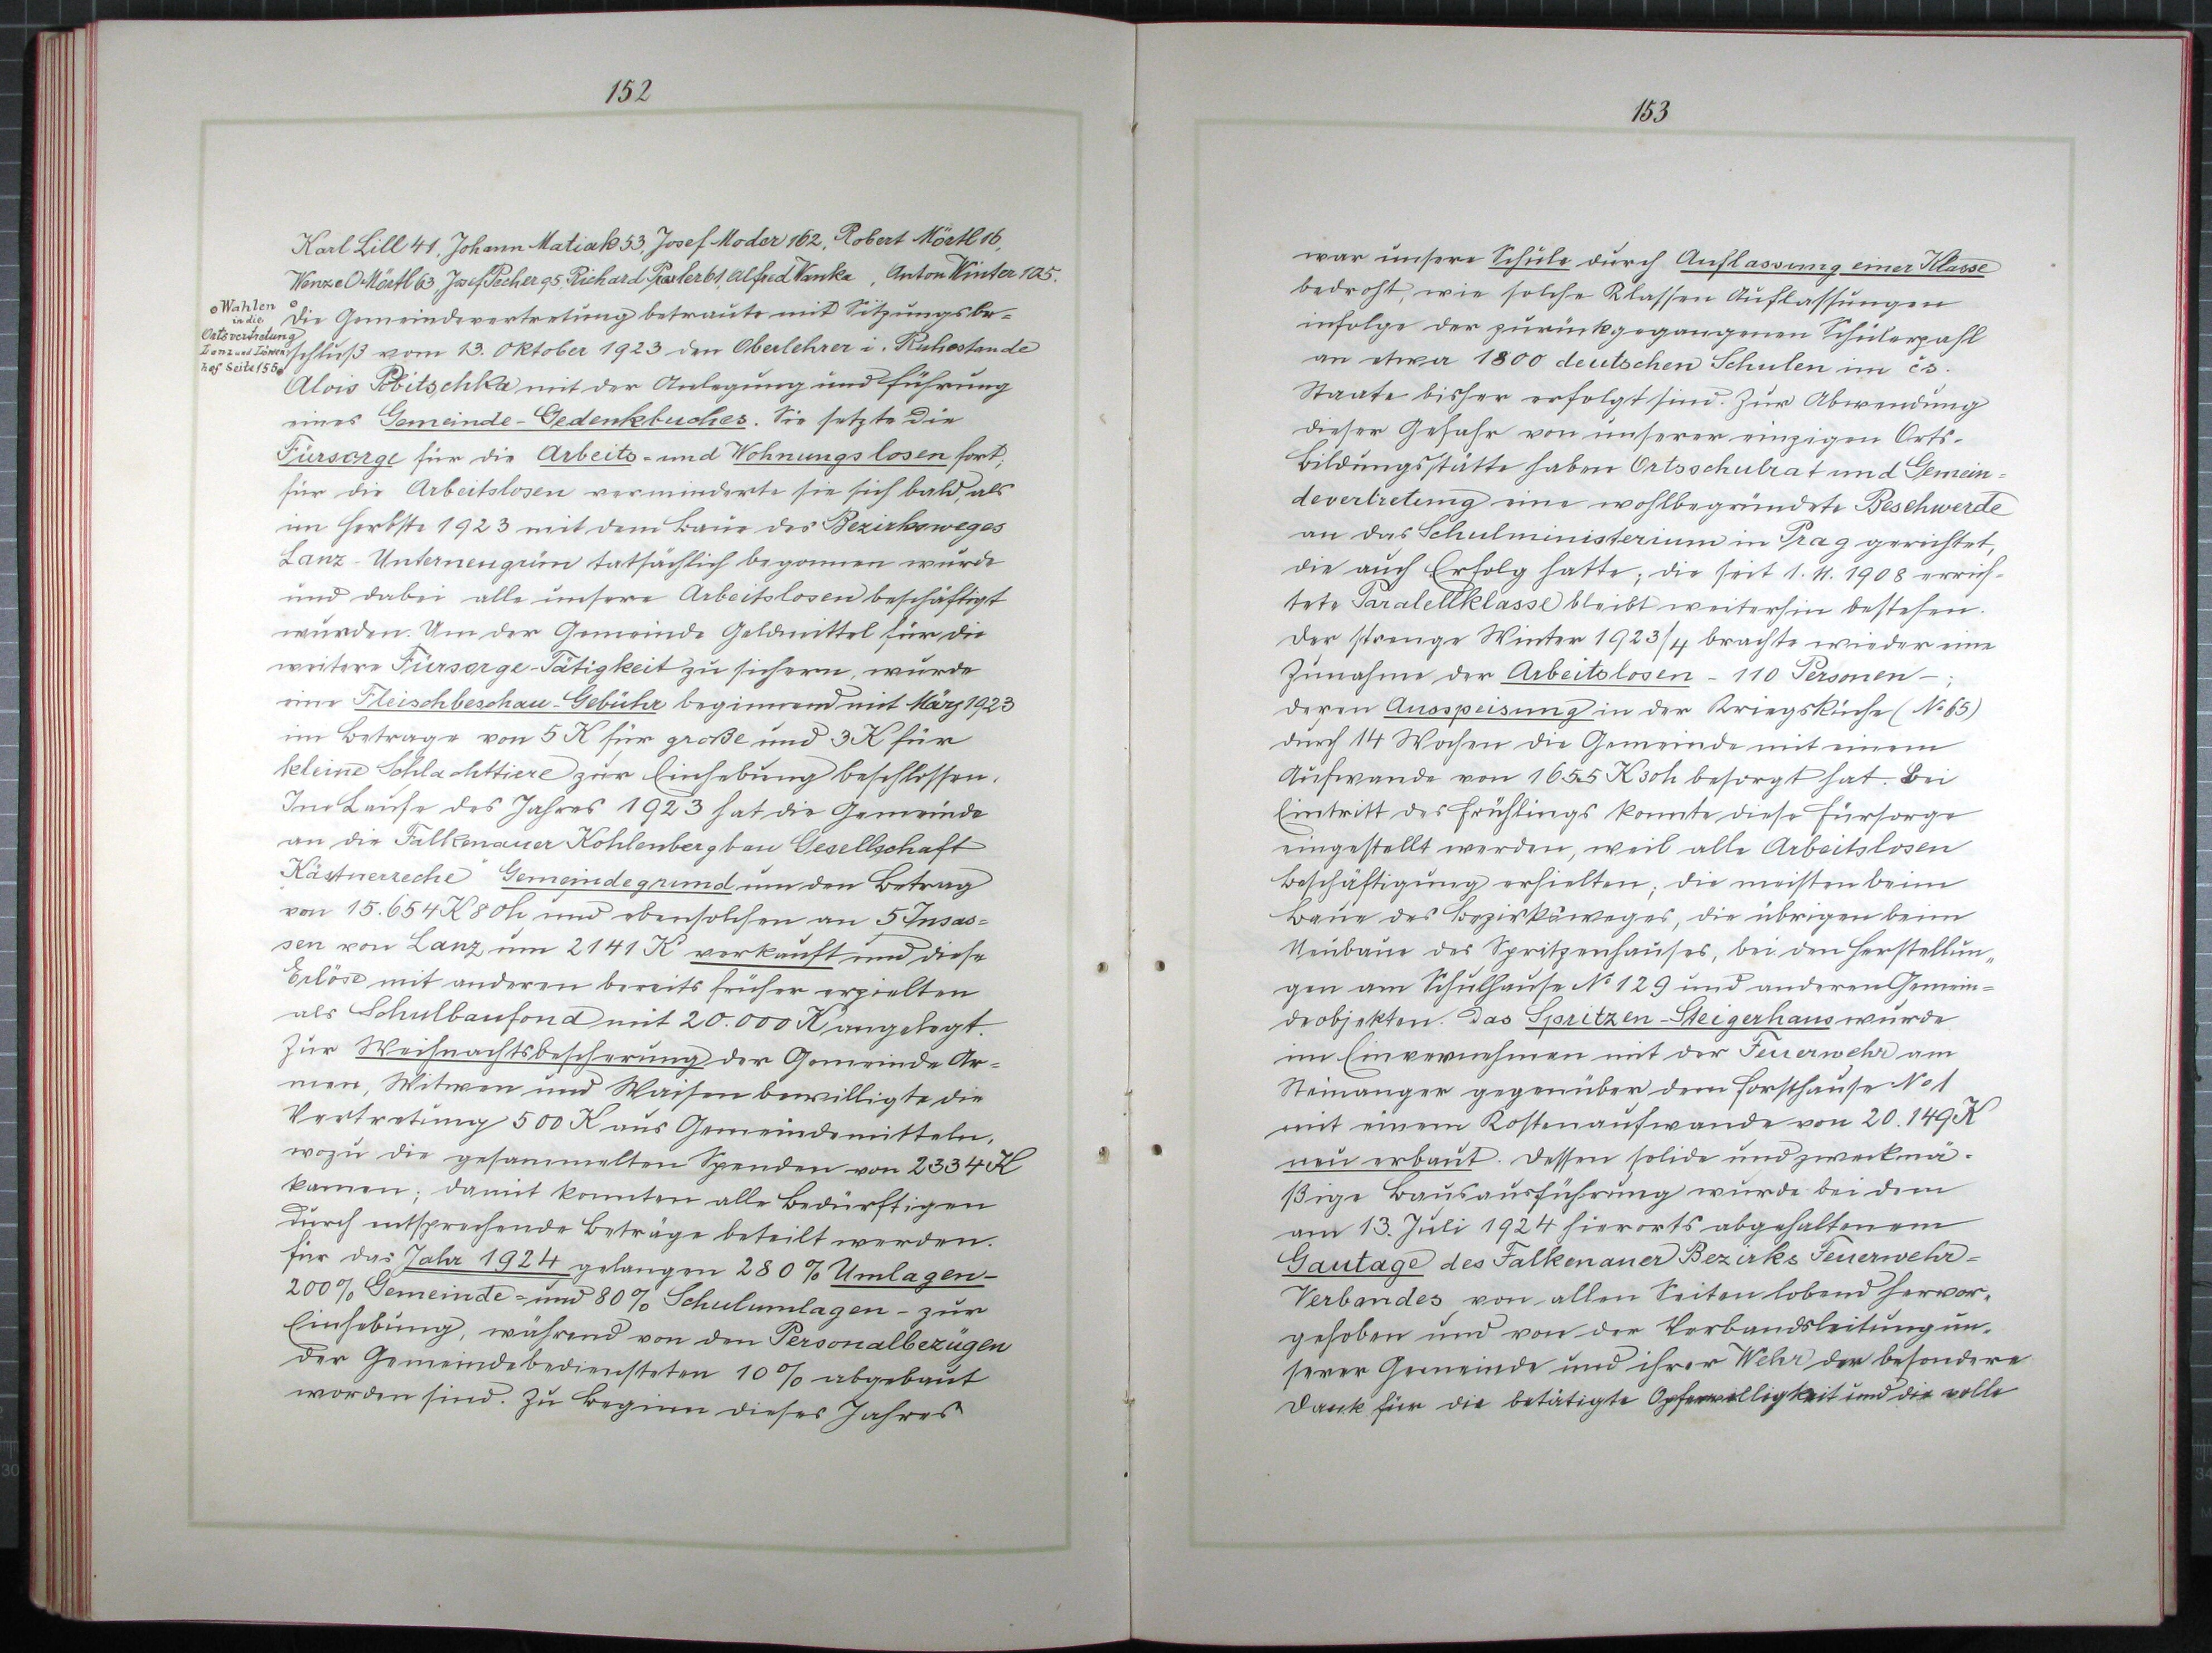 152
Karl Lill 41, Johann Matiak 53, Josef Moder 162, Robert Mörtl 16,
Wenzel Mörtl 63, Josef Pecher 95, Richard 61, Alfred Wanka , Anton Winter 125.
o Wahlen
in die
Ortsvertretung
Lanz und Löwen-
hof Seite 155 o
o
Die Gemeindevertretung betraute mit Sitzungsbe-
schluß vom 13. Oktober 1923 den Oberlehrer i. Ruhestande
Alois Pobitschka mit der Anlegung und Führung
eines Gemeinde-Gedenkbuches. Sie setzte die
Fürsorge für die Arbeits- und Wohnungslosen fort;
für die Arbeitslosen verminderte sie sich bald, als
im Herbste 1923 mit dem Baue des Bezirksweges
Lanz-Unterneugrün tatsächlich begonnen wurde
und dabei alle unsere Arbeitslosen beschäftigt
wurden. Um der Gemeinde Geldmittel für die
weitere Fürsorge-Tätigkeit zu sichern, wurde
eine Fleischbeschau-Gebühr beginnend mit März 1923
im Betrage von 5 K für große und 3 K für
kleine Schlachttiere zur Einhebung beschlossen.
Im Laufe des Jahres 1923 hat die Gemeinde
an die Falkenauer Kohlenbergbau Gesellschaft
„Kästnerzeche" Gemeindegrund um den Betrag
von 15.654 K 80 h und ebensolchen an 5 Insas-
sen von Lanz um 2141 K verkauft und diese
Erlöse mit anderen bereits früher erzielten
als Schulbaufond mit 20.000 K angelegt.
Zur Weihnachtsbescherung der Gemeinde Ar-
men, Witwen und Waisen bewilligte die
Vertretung 500 K aus Gemeindemitteln,
wozu die gesammelten Spenden von 2334 K
kamen; damit konnten alle Bedürftigen
durch entsprechende Beträge beteilt werden.
Für das Jahr 1924 gelangen 280 % Umlagen-
200 % Gemeinde- und 80 % Schulumlagen - zur
Einhebung, während von den Personalbezügen
der Gemeindebediensteten 10 % abgebaut
worden sind. Zu Beginn dieses Jahres
153
war unsere Schule durch Auflassung einer Klasse
bedroht, wie solche Klassen Auflassungen
infolge der zurückgegangenen Schülerzahl
an etwa 1800 deutschen Schulen im čs.
Staate bisher erfolgt sind. Zur Abwendung
dieser Gefahr von unserer einzigen Orts-
bildungsstätte haben Ortsschulrat und Gemein-
devertretung eine wohlbegründete Beschwerde
an das Schulministerium in Prag gerichtet,
die auch Erfolg hatte; die seit 1. 11. 1908 errich-
tete Paralellklasse bleibt weiterhin bestehen.
Der strenge Winter 1923/4 brachte wieder eine
Zunahme der Arbeitslosen - 110 Personen -;
deren Ausspeisung in der Kriegsküche (No 65)
durch 14 Wochen die Gemeinde mit einem
Aufwande von 1655 K 30 h besorgt hat. Bei
Eintritt des Frühlings konnte diese Fürsorge
eingestellt werden, weil alle Arbeitslosen
Beschäftigung erhielten; die meisten beim
Baue des Bezirksweges, die übrigen beim
Neubaue des Spritzenhauses, bei den Herstellun-
gen am Schulhause No 129 und anderen Gemein-
deobjekten. Das Spritzen-Steigerhaus wurde
im Einvernehmen mit der Feuerwehr am
Steinanger gegenüber dem Forsthause No 1
mit einem Kostenaufwande von 20.149 K
neu erbaut. Dessen solide und zweckmä-
ßige Bauausführung wurde bei dem
am 13. Juli 1924 hierorts abgehaltenem
Gautage des Falkenauer Bezirks Feuerwehr-
Verbandes von allen Seiten lobend hervor-
gehoben und von der Verbandsleitung un-
serer Gemeinde und ihrer Wehr der besondere
Dank für die betätigte Opferwilligkeit und die volle